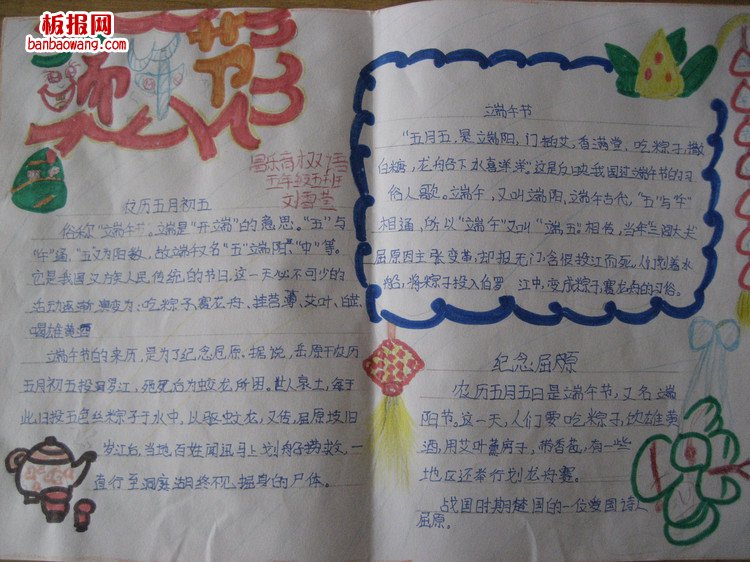 板报网
banbaowang.com
端午节
五年级五班
农历五月初五
俗称"端午节"。端是"开端"的意思。"五"与
"午"通,"五"又为阳数,故端午又名"五"端阳"、"中"等。
它是我国汉族人民传统的节日,这一天必不可少的
活动逐渐演变为、吃粽子、赛龙舟、挂菖蒲、艾叶、白芷、
喝雄黄酒
端午节的来历,是为了纪念屈原。据说,屈原于农历
五月初五投汨罗江,死后为蛟龙所困。世人哀之,每于
此日投五色丝粽子于水中,以驱蛟龙,又传,屈原投汨
罗江后,当地百姓闻讯马上划船捞救,一
直行至洞庭湖,终不见屈原的尸体。
端午节
"五月五,是端阳,门插艾,香满堂,吃粽子,撒
白糖,龙舟各下水喜洋洋"。这是反映我国过端午节的习
俗人歌。端午,又叫端阳,端午古代,"五"与"午"
相通,所以"端午"又叫"端五"。相传,当年三闾大夫
屈原因主张变革,却报无门,含恨投江而死,人们划着水
船,将粽子投入白罗 江中,变成粽子,赛龙舟的习俗。
纪念屈原
农历五月五日是端午节,又名端
阳节。这一天,人们要吃粽子,饮雄黄
酒,用艾叶薰房子,带香苞,有一些
地区还举行划龙舟赛。
战国时期楚国的一位爱国诗人
屈原。